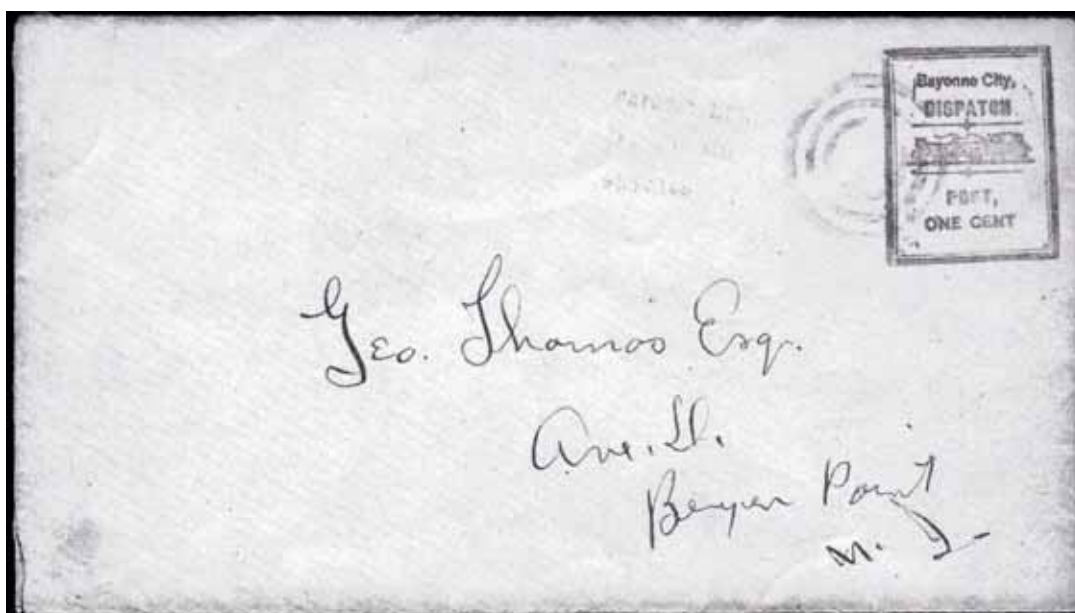 Bayonne City,
DISPATCH
POST,
ONE CENT
Geo. Thomas Esq.
Ave. D.
Bergen Point
N. J.